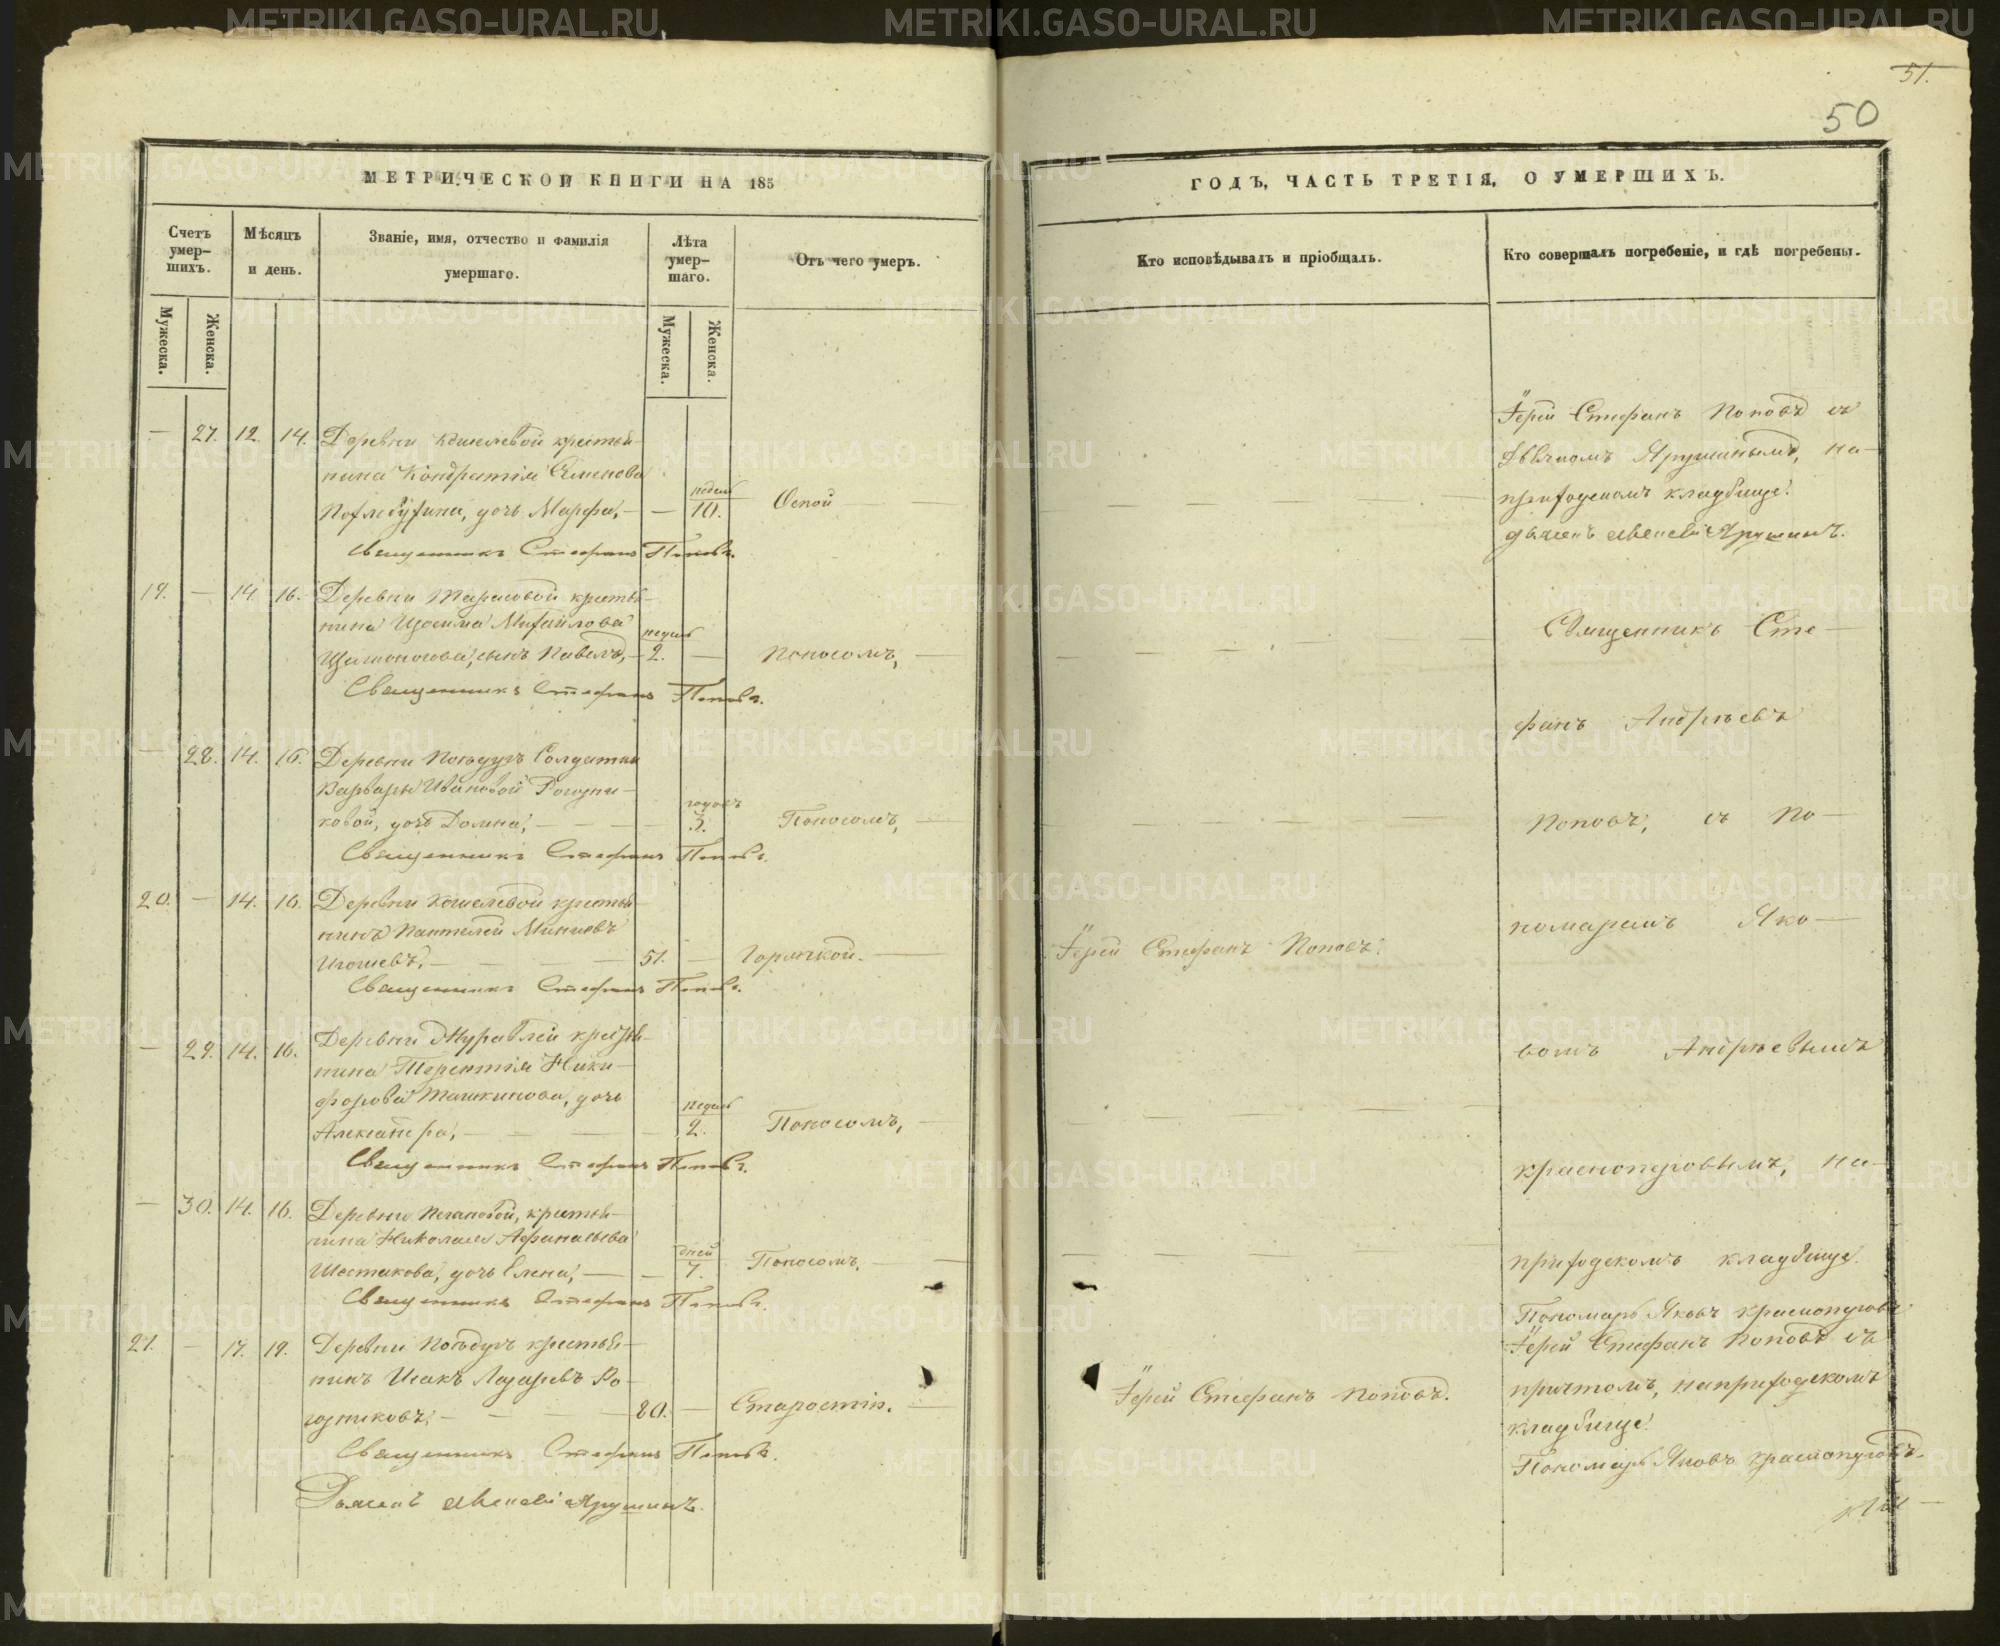 51.
50
МЕТРИЧЕСКОЙ КНИГИ НА 185
Счетъ умер-шихъ.
Мѣсяцъ и день.
Званіе, имя, отчество и фамилія умершаго.
Лѣта умер-шаго.
Отъ чего умеръ.
Мужеска.
Женска.
Мужеска.
Женска.
— 27. 12. 14. Деревни Кошелевой крестья-
нина Кондратія Семенова
дочь Марфа, — — недѣль 10. Оспой —
Священникъ Стефанъ Поповъ.
19. — 14. 16. Деревни Тарасовой крестья-
нина Михайлова
сынъ Павелъ, — недѣль 2. — Поносомъ, —
Священникъ Стефанъ Поповъ.
— 28. 14. 16. Деревни Солдатки
Варвары Ивановой Рогозни-
ковой, дочь — — — годовъ 3. Поносомъ, —
Священникъ Стефанъ Поповъ.
20. — 14. 16. Деревни Кошелевой крестья-
нинъ Пантелей Миниевъ
Игошевъ, — — — 51. — Горячкой. —
Священникъ Стефанъ Поповъ.
— 29. 14. 16. Деревни Журавлей крестья-
нина Терентія Ники-
форова Ташкинова, дочь
Александра, — — — — недѣль 2. Поносомъ, —
Священникъ Стефанъ Поповъ.
— 30. 14. 16. Деревни крестья-
нина Николая Афанасьева
Шестакова, дочь Елена, — — дней 7. Поносомъ, —
Священникъ Стефанъ Поповъ.
21. — 17. 19. Деревни крестья-
нинъ Исакъ Лазаревъ Ро-
гозниковъ, — — — 80. — Старостію. —
Священникъ Стефанъ Поповъ.
Дьяконъ Ярушинъ.
ГОДЪ, ЧАСТЬ ТРЕТІЯ, О УМЕРШИХЪ.
Кто исповѣдывалъ и пріобщалъ.
Кто совершалъ погребеніе, и гдѣ погребены.
Іерей Стефанъ Поповъ съ
Дьякономъ Ярушинымъ, на
приходскомъ кладбище.
Дьяконъ Ярушинъ.
Священникъ Сте-
фанъ Андреевъ
Поповъ, съ По-
Іерей Стефанъ Поповъ.
номаремъ Яко-
вомъ Андреевымъ
Краснопуровымъ, на
приходскомъ кладбище.
Пономарь Яковъ Краснопуровъ
Іерей Стефанъ Поповъ.
Іерей Стефанъ Поповъ съ
причтомъ, на приходскомъ
кладбище.
Пономарь Яковъ Краснопуровъ.
METRIKI.GASO-URAL.RU